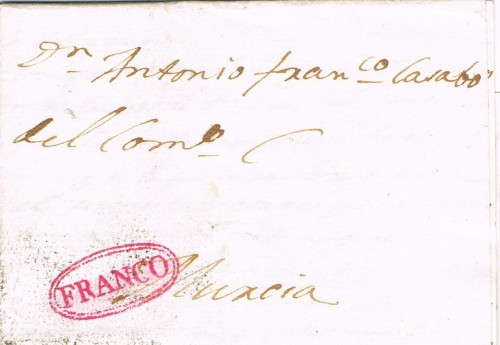 Dn Antonio franco Casabo
del Como
Murcia
FRANCO